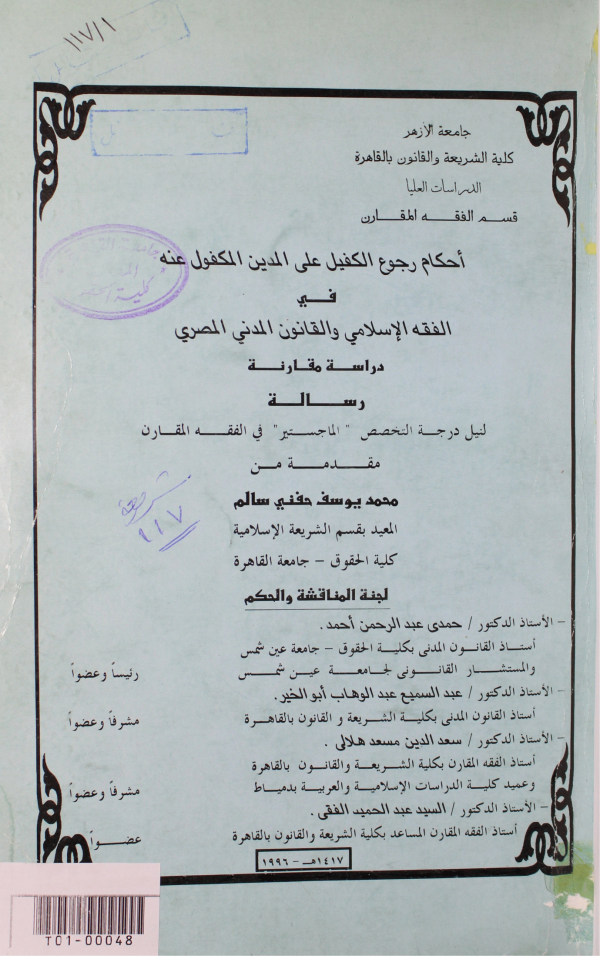 ١١٧/١
جامعة الأزهر
كلية الشريعة والقانون بالقاهرة
الدراسات العليا
قسم الفقه المقارن
أحكام رجوع الكفيل على المدين المكفول عنه
في
الفقه الإسلامي والقانون المدني المصري
دراسة مقارنة
رسالة
لنيل درجة التخصص " الماجستير" في الفقه المقارن
مقدمة من
محمد يوسف حفني سالم
المعيد بقسم الشريعة الإسلامية
كلية الحقوق – جامعة القاهرة
١١٧
لجنة المناقشة والحكم
– الأستاذ الدكتور / حمدى عبد الرحمن أحمد.
أستاذ القانون المدنى بكلية الحقوق – جامعة عين شمس
والمستشار القانونى لجامعة عين شمس رئيساً وعضواً
– الأستاذ الدكتور / عبد السميع عبد الوهاب أبو الخير.
أستاذ القانون المدنى بكلية الشريعة و القانون بالقاهرة مشرفاً وعضواً
– الأستاذ الدكتور / سعد الدين مسعد هلالى .
أستاذ الفقه المقارن بكلية الشريعة والقانون بالقاهرة
وعميد كلية الدراسات الإسلامية والعربية بدمياط مشرفاً وعضواً
– الأستاذ الدكتور / السيد عبد الحميد الفقى .
أستاذ الفقه المقارن المساعد بكلية الشريعة والقانون بالقاهرة عضواً
١٤١٧هـ – ١٩٩٦
T01-00048